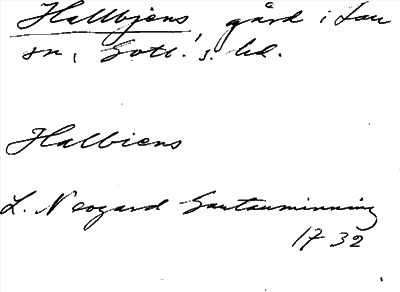 Hallbjens, gård i Lau
sn, Gotl. s. hd.
Halbiens
L. Neogard Gautauminning
1732